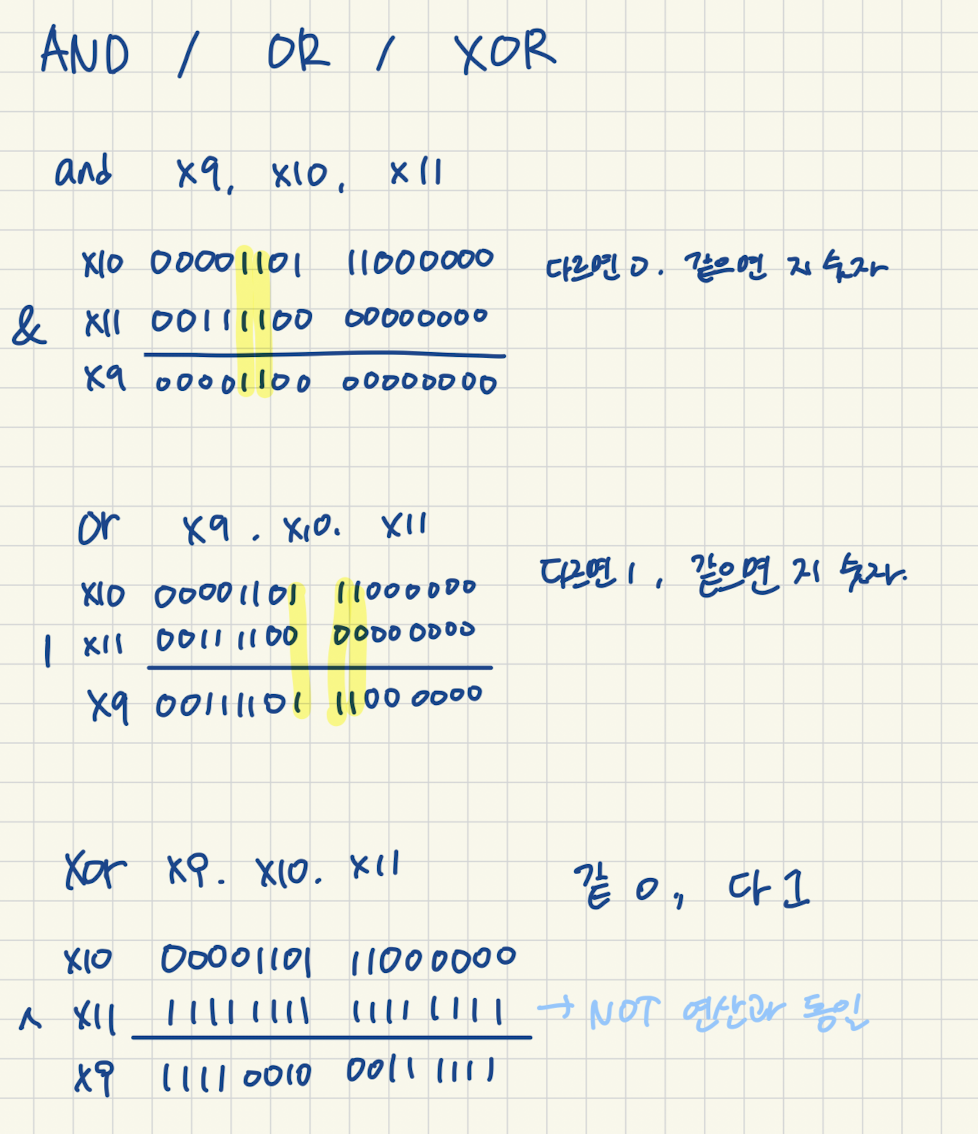 AND / OR / XOR
and x9, x10, x11
x10 00001101 11000000 다르면 0. 같으면 지 숫자
& x11 00111100 00000000
x9 00001100 00000000
or x9. x10. x11
x10 00001101 11000000 다르면 1, 같으면 지 숫자.
| x11 00111100 00000000
x9 00111101 11000000
Xor x9. x10. x11 같 0, 다 1
x10 00001101 11000000
^ x11 11111111 11111111 → NOT 연산과 동일
x9 11110010 00111111